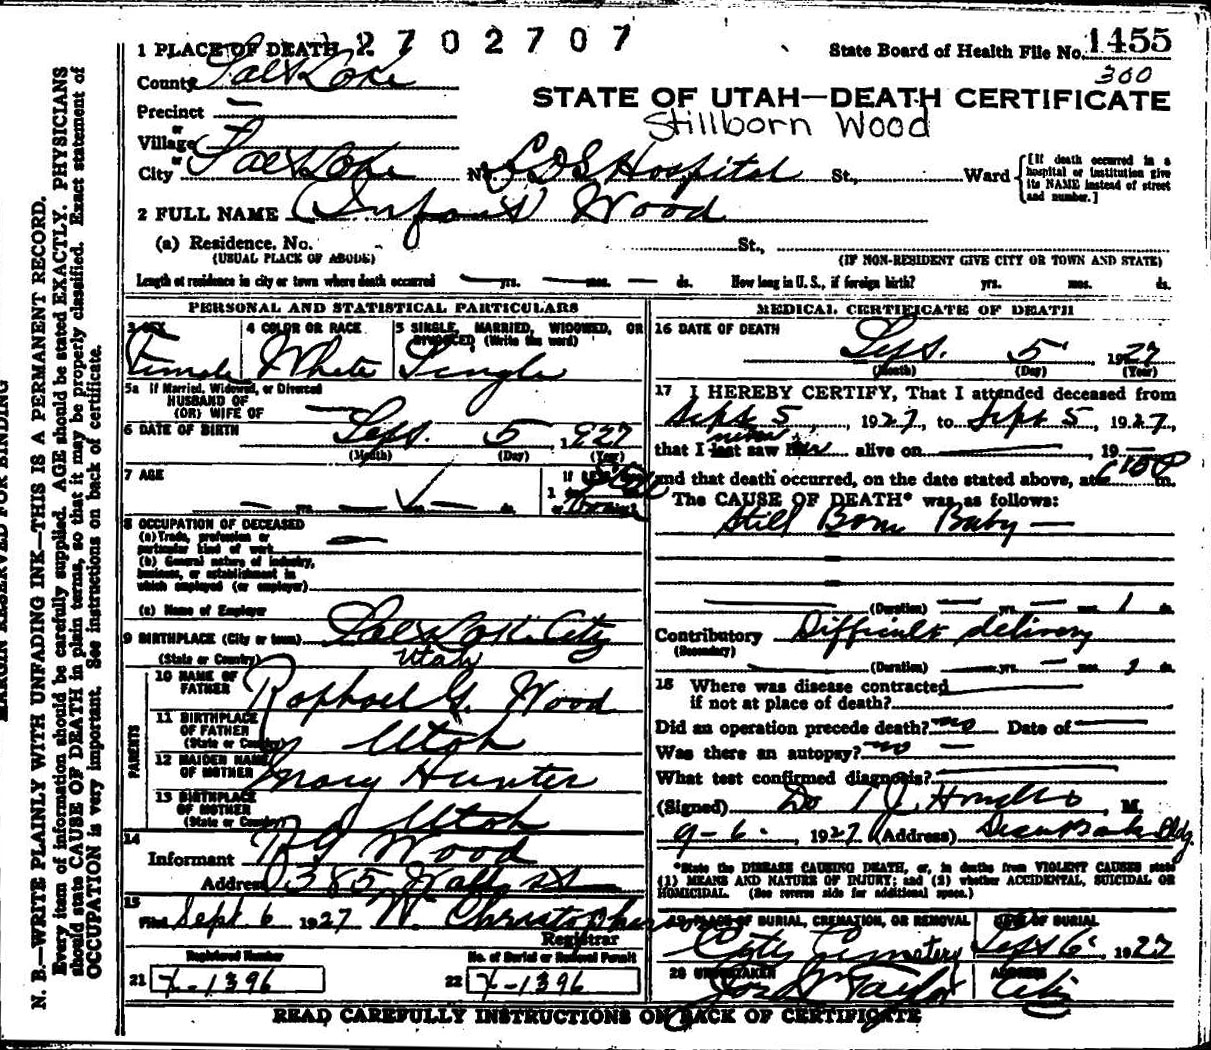 1 PLACE OF DEATH 2702707
State Board of Health File No. 1455
300
County Salt Lake
STATE OF UTAH—DEATH CERTIFICATE
Stillborn Wood
Precinct —
or
Village
or
City Salt Lake No. LDS Hospital St., Ward
[If death occurred in a hospital or institution give its NAME instead of street and number.]
2 FULL NAME Infant Wood
(a) Residence. No. St.,
(USUAL PLACE OF ABODE) (IF NON-RESIDENT GIVE CITY OR TOWN AND STATE)
Length of residence in city or town where death occurred — yrs. — mos. — ds. How long in U. S., if foreign birth? yrs. mos. ds.
PERSONAL AND STATISTICAL PARTICULARS
3 SEX 4 COLOR OR RACE 5 SINGLE, MARRIED, WIDOWED, OR DIVORCED (Write the word)
Female White Single
5a If Married, Widowed, or Divorced
HUSBAND OF
(OR) WIFE OF —
6 DATE OF BIRTH Sept. 5, 1927
(Month) (Day) (Year)
7 AGE
— — — ds.
8 OCCUPATION OF DECEASED
(a) Trade, profession or
particular kind of work —
(b) General nature of industry,
business, or establishment in
which employed (or employer)
(c) Name of Employer
9 BIRTHPLACE (City or town) Salt Lake City
(State or Country) Utah
PARENTS
10 NAME OF FATHER Raphael G. Wood
11 BIRTHPLACE OF FATHER
(State or Country) Utah
12 MAIDEN NAME OF MOTHER Mary Hunter
13 BIRTHPLACE OF MOTHER
(State or Country) Utah
14
Informant R G Wood
Address 1385 St
15
Filed Sept 6 1927 W. Christopherson
Registrar
Registered Number No. of Burial or Removal Permit
21 X-1396 22 X-1396
MEDICAL CERTIFICATE OF DEATH
16 DATE OF DEATH
Sept. 5 1927
(Month) (Day) (Year)
17 I HEREBY CERTIFY, That I attended deceased from
Sept 5, 1927, to Sept 5, 1927,
never
that I last saw her alive on —, 19—
and that death occurred, on the date stated above, at m.
The CAUSE OF DEATH* was as follows:
Still Born Baby —
— (Duration) — yrs. — mos. 1 ds.
Contributory Difficult delivery
(Secondary)
— (Duration) — yrs. — mos. 1 ds.
18 Where was disease contracted
if not at place of death?
Did an operation precede death? no Date of —
Was there an autopsy? no —
What test confirmed diagnosis? —
(Signed) M.
9-6, 1927 (Address) Bldg.
*State the DISEASE CAUSING DEATH, or, in deaths from VIOLENT CAUSES state
(1) MEANS AND NATURE OF INJURY; and (2) whether ACCIDENTAL, SUICIDAL OR
HOMICIDAL. (See reverse side for additional space.)
19 PLACE OF BURIAL, CREMATION, OR REMOVAL DATE OF BURIAL
City Cemetery Sept 6 1927
20 UNDERTAKER ADDRESS
Jos. Wm Taylor City
READ CAREFULLY INSTRUCTIONS ON BACK OF CERTIFICATE
MARGIN RESERVED FOR BINDING
N. B.—WRITE PLAINLY WITH UNFADING INK—THIS IS A PERMANENT RECORD.
Every item of information should be carefully supplied. AGE should be stated EXACTLY. PHYSICIANS
should state CAUSE OF DEATH in plain terms, so that it may be properly classified. Exact statement of
OCCUPATION is very important. See instructions on back of certificate.